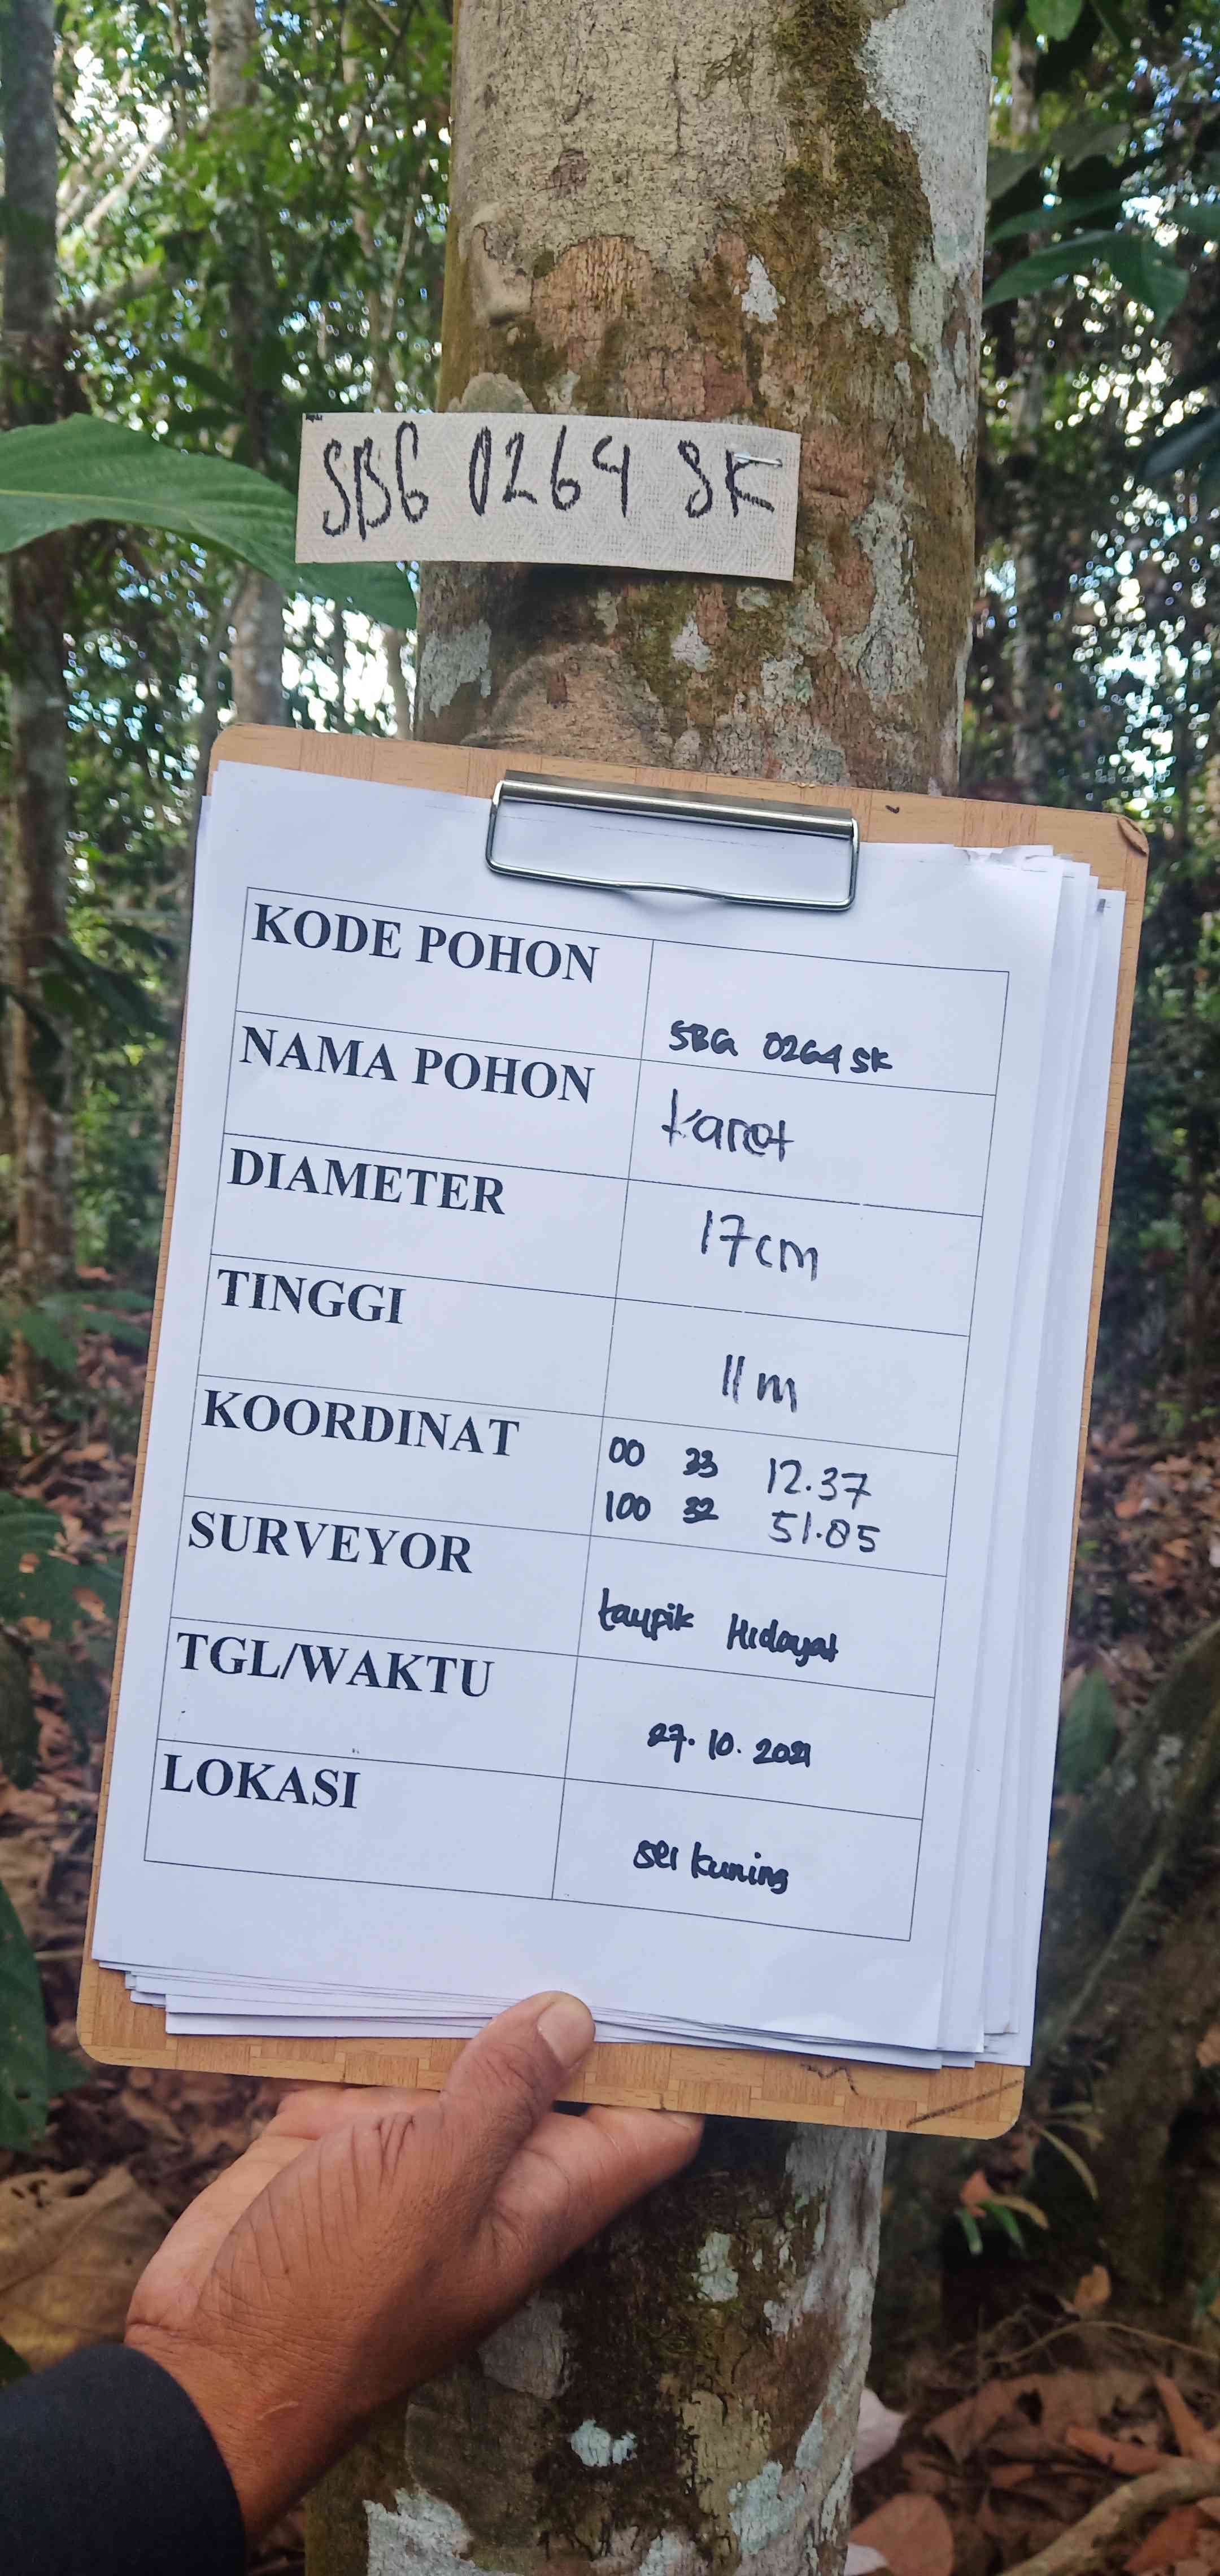 SBG 0264 SK
KODE POHON
SBG 0264 SK
NAMA POHON
karet
DIAMETER
17cm
TINGGI
11 m
KOORDINAT
00 33 12.37
100 32 51.85
SURVEYOR
taupik Hidayat
TGL/WAKTU
27.10.2021
LOKASI
sei kuning